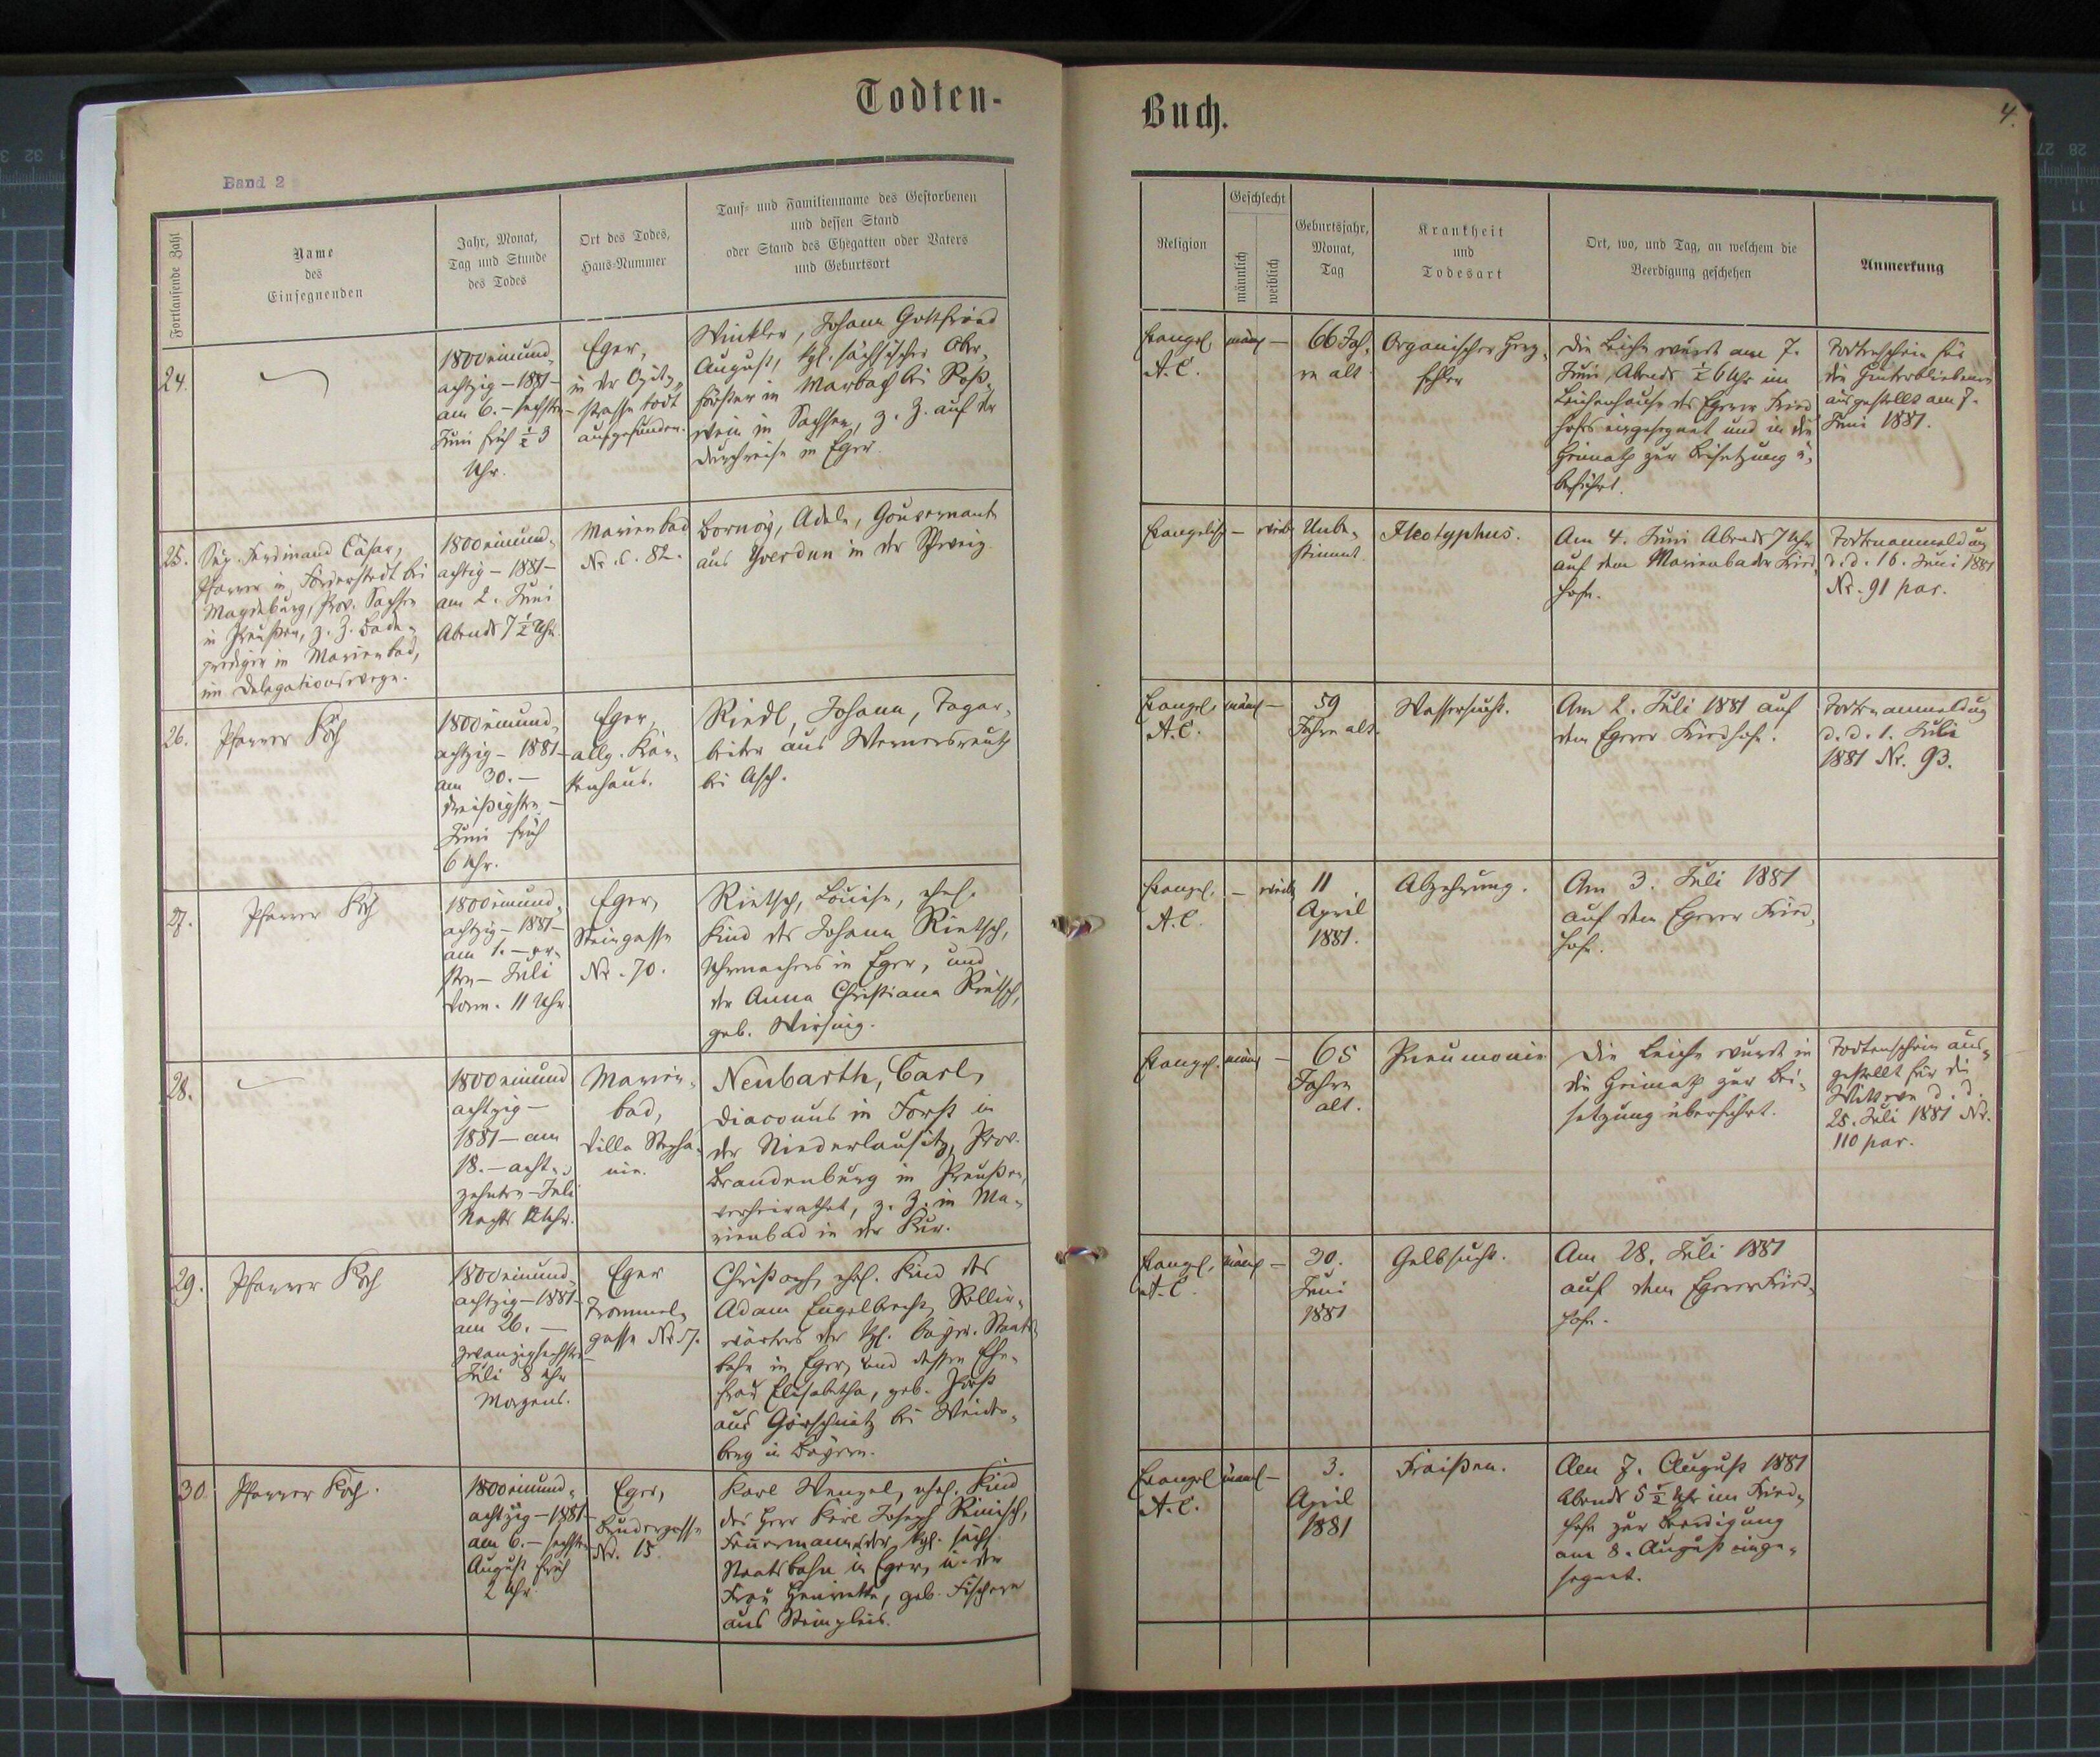 Todten-
Buch.
4.
Band 2
Fortlaufende Zahl
Name
des
Einsegnenden
Jahr, Monat,
Tag und Stunde
des Todes
Ort des Todes,
Haus-Nummer
Tauf- und Familienname des Gestorbenen
und dessen Stand
oder Stand des Ehegatten oder Vaters
und Geburtsort
Religion
Geschlecht
männlich
weiblich
Geburtsjahr,
Monat,
Tag
Krankheit
und
Todesart
Ort, wo, und Tag, an welchem die
Beerdigung geschehen
Anmerkung
24.
1800 einund-
achtzig – 1881 –
am 6. – sechsten –
Juni früh ½ 3
Uhr.
Eger,
in der Opitz-
strasse todt
aufgefunden.
Winkler, Johann Gottfried
August, kgl. sächsischer Ober-
förster in Marbach bei Roß-
wein in Sachsen, z. Z. auf der
Durchreise in Eger.
Evangel.
A. C.
männl –
66 Jah-
re alt
Organischer Herz-
fehler
Die Leiche wurde am 7.
Juni, Abends ½ 6 Uhr im
Leichenhause des Egerer Fried-
hofes eingesegnet und in die
Heimath zur Beisetzung ü-
berführt.
Todtenschein für
die Hinterbliebenen
ausgestellt am 7.
Juni 1881.
25.
Ferdinand Cäsar,
Pfarrer in Förderstedt bei
Magdeburg, Prov. Sachsen
in Preußen, z. Z. Bade-
prediger in Marienbad,
im Delegationswege.
1800 einund-
achtzig – 1881 –
am 2. Juni
Abends 7 ½ Uhr.
Marienbad
Nr. C. 82.
Bornoz, Adele, Gouvernante
aus Yverdun in der Schweiz
Evangelisch
– weibl
Unbe-
stimmt
Ileotyphus.
Am 4. Juni Abends 7 Uhr
auf dem Marienbader Fried-
hofe.
Todtenanmeldung
d. d. 16. Juni 1881
Nr. 91 par.
26.
Pfarrer Koch
1800 einund-
achtzig – 1881 –
am 30. –
dreißigsten –
Juni früh
6 Uhr.
Eger,
allg. Kran-
kenhaus.
Riedl, Johann, Tagar-
beiter aus Wernersreuth
bei Asch.
Evangel.
A. C.
männl –
59
Jahre alt.
Wassersucht.
Am 2. Juli 1881 auf
dem Egerer Friedhofe.
Todtenanmeldung
d. d. 1. Juli
1881 Nr. 93.
27.
Pfarrer Koch
1800 einund-
achtzig – 1881 –
am 1. – er-
sten – Juli
Vorm. 11 Uhr.
Eger,
Steingasse
Nr. 70.
Rietsch, Louise, ehel.
Kind des Johann Rietsch,
Uhrmachers in Eger, und
der Anna Christiana Rietsch,
geb. Wirsing.
Evangel.
A. C.
– weibl
11
April
1881.
Abzehrung.
Am 3. Juli 1881
auf dem Egerer Fried-
hofe.
28.
1800 einund
achtzig –
1881 – am
18. – acht-
zehnten – Juli
Nachts 12 Uhr.
Marien-
bad,
Villa Stepha-
nie.
Neubarth, Carl,
Diaconus in Forst in
der Niederlausitz, Prov.
Brandenburg in Preußen,
verheirathet, z. Z. in Ma-
rienbad in der Kur.
Evangel.
männl –
65
Jahre
alt.
Pneumonie
Die Leiche wurde in
die Heimath zur Bei-
setzung überführt.
Todtenschein aus-
gestellt für die
Wittwe d. d.
25. Juli 1881 Nr.
110 par.
29.
Pfarrer Koch
1800 einund-
achtzig – 1881 –
am 26. –
zwanzigsechsten –
Juli 8 Uhr
Morgens.
Eger
Trommel-
gasse Nr. 7.
Christoph, ehel. Kind des
Adam Engelbrecht,
wärters der kgl. bayer. Staats-
bahn in Eger, und dessen Ehe-
frau Elisabetha, geb.
aus Görschnitz bei Weiden-
berg in Bayern.
Evangel.
A. C.
männl –
30.
Juni
1881
Gelbsucht.
Am 28. Juli 1881
auf dem Egerer Fried-
hofe.
30.
Pfarrer Koch.
1800 einund-
achtzig – 1881 –
am 6. – sechsten –
August früh
2 Uhr.
Eger,
Brudergasse
Nr. 15.
Karl Wenzel, ehel. Kind
des Herr Karl Joseph
Feuermanns der kgl. sächs.
Staatsbahn in Eger, u. der
Frau Henriette, geb. Fischer
aus Steinpleis.
Evangel
A. C.
männl –
3.
April
1881
Fraißen.
Am 7. August 1881
Abends 5 ½ Uhr im Fried-
hofe zur Beerdigung
am 8. August einge-
segnet.